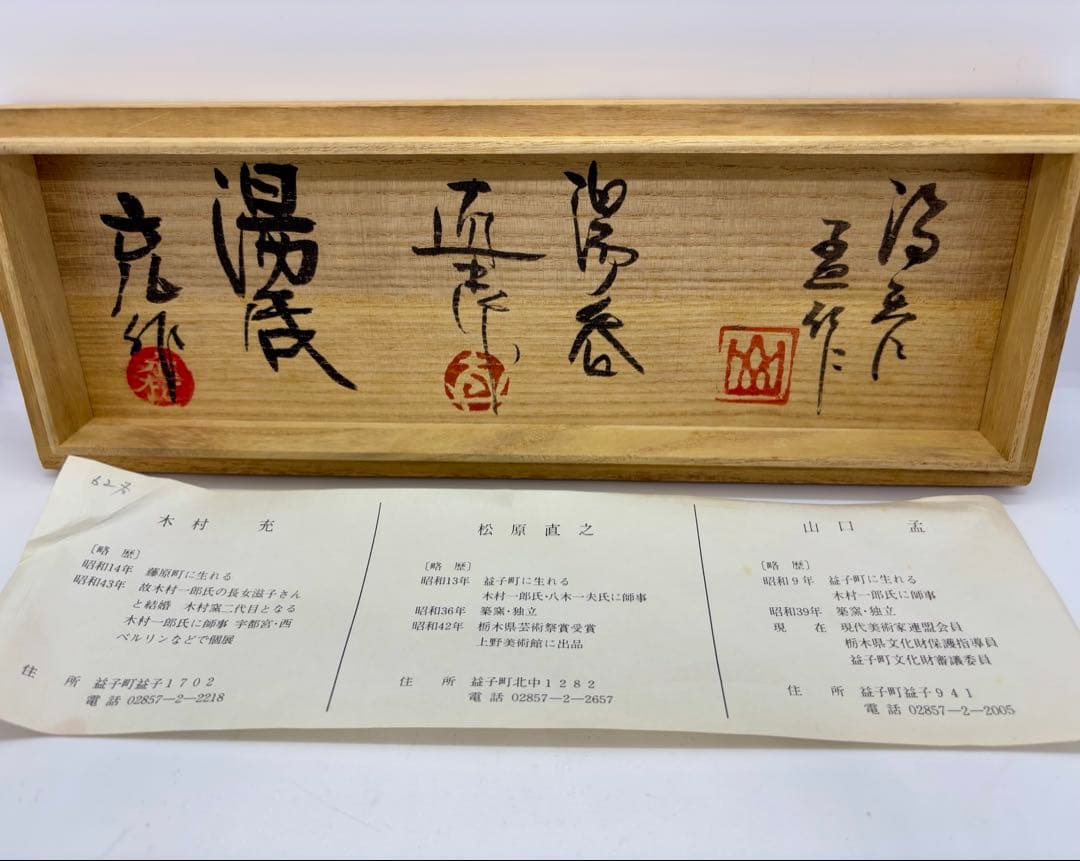 湯呑
孟作
湯呑
直
湯呑
充作
62才
木村 充
〔略 歴〕
昭和14年 藤原町に生れる
昭和43年 故木村一郎氏の長女滋子さん
と結婚 木村窯二代目となる
木村一郎氏に師事 宇都宮・西
ベルリンなどで個展
住 所 益子町益子1702
電話 02857―2―2218
松原直之
〔略 歴〕
昭和13年 益子町に生れる
木村一郎氏・八木一夫氏に師事
昭和36年 築窯・独立
昭和42年 栃木県芸術祭賞受賞
上野美術館に出品
住 所 益子町北中1282
電話 02857―2―2657
山口 孟
〔略 歴〕
昭和9年 益子町に生れる
木村一郎氏に師事
昭和39年 築窯・独立
現 在 現代美術家連盟会員
栃木県文化財保護指導員
益子町文化財審議委員
住 所 益子町益子941
電話 02857―2―2005